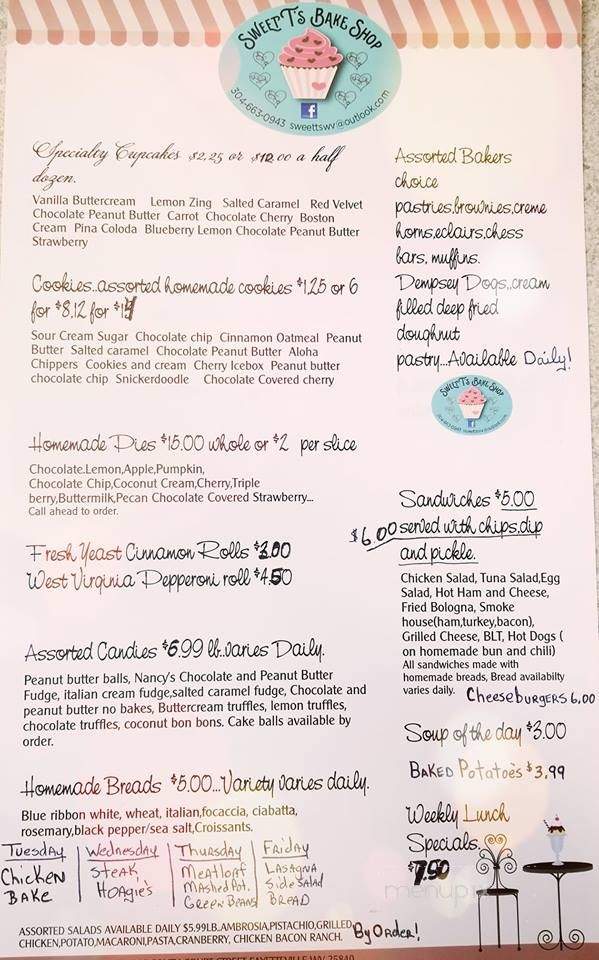 Sweet T's Bake Shop
304-663-0943 sweettswv@outlook.com
Specialty Cupcakes $2.25 or $12.00 a half
dozen.
Vanilla Buttercream Lemon Zing Salted Caramel Red Velvet
Chocolate Peanut Butter Carrot Chocolate Cherry Boston
Cream Pina Coloda Blueberry Lemon Chocolate Peanut Butter
Strawberry
Cookies..assorted homemade cookies $1.25 or 6
for $8,12 for $14
Sour Cream Sugar Chocolate chip Cinnamon Oatmeal Peanut
Butter Salted caramel Chocolate Peanut Butter Aloha
Chippers Cookies and cream Cherry Icebox Peanut butter
chocolate chip Snickerdoodle Chocolate Covered cherry
Homemade Pies $15.00 whole or $2 per slice
Chocolate.Lemon,Apple,Pumpkin,
Chocolate Chip,Coconut Cream,Cherry,Triple
berry,Buttermilk,Pecan Chocolate Covered Strawberry...
Call ahead to order.
Fresh Yeast Cinnamon Rolls $3.00
West Virginia Pepperoni roll $4.50
Assorted Candies $6.99 lb..varies Daily.
Peanut butter balls, Nancy's Chocolate and Peanut Butter
Fudge, italian cream fudge,salted caramel fudge, Chocolate and
peanut butter no bakes, Buttercream truffles, lemon truffles,
chocolate truffles, coconut bon bons. Cake balls available by
order.
Homemade Breads $5.00...Variety varies daily.
Blue ribbon white, wheat, italian,focaccia, ciabatta,
rosemary,black pepper/sea salt,Croissants.
Tuesday
Chicken
Bake
Wednesday
Steak
Hoagie's
Thursday
Meatloaf
Mashed Pot.
Green Beans
Friday
Lasagna
Side Salad
Bread
ASSORTED SALADS AVAILABLE DAILY $5.99LB.AMBROSIA,PISTACHIO,GRILLED
CHICKEN,POTATO,MACARONI,PASTA,CRANBERRY, CHICKEN BACON RANCH.
By Order!
Assorted Bakers
choice
pastries,brownies,creme
horns,eclairs,chess
bars, muffins.
Dempsey Dogs,.cream
filled deep fried
doughnut
pastry...Available Daily!
Sweet T's Bake Shop
Sandwiches $5.00
$6.00 served with chips,dip
and pickle.
Chicken Salad, Tuna Salad,Egg
Salad, Hot Ham and Cheese,
Fried Bologna, Smoke
house(ham,turkey,bacon),
Grilled Cheese, BLT, Hot Dogs (
on homemade bun and chili)
All sandwiches made with
homemade breads, Bread availabilty
varies daily.
Cheeseburgers 6.00
Soup of the day $3.00
Baked Potatoe's $3.99
Weekly Lunch
Specials.
$7.50
menupix